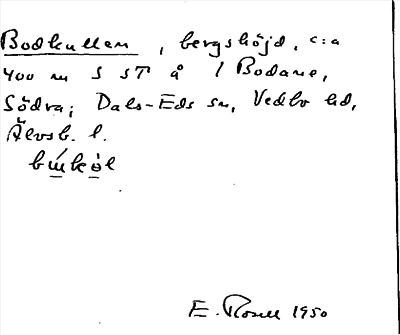 Bodkullen, bergshöjd, c:a
400 m S sT å 1 Bodane,
Södra; Dals-Eds sn, Vedbo hd,
Älvsb. l.
E. Rosell 1950